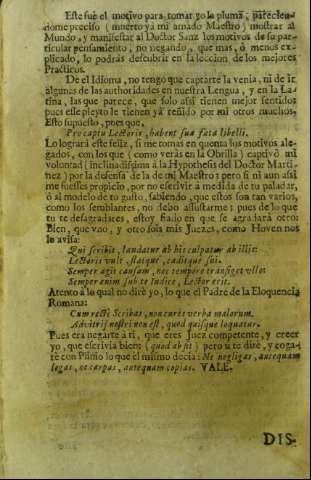 Este fuè el motivo para tomar yo le pluma, pareciendome preciso (muerto yà mi amado Maestro) mostrar al
Mundo, y manifestar al Doctor Sanz los motivos de su particular pensamiento, no negando, que mas, ò menos explicado, lo podràs descubrir en la leccion de los mejores
Practicos.
De el Idioma, no tengo que captarte la venia, ni de ir
algunas de las authoridades en nuestra Lengua, y en la Latina, las que parece, que solo assi tienen mejor sentido;
pues esse pleyto le tienen yà reñido por mi otros muchos.
Esto supuesto, pues que,
Pro captu Lectoris, habent sua fata libelli.
Lo logrará este feliz, si me tomas en quenta los motivos alegados, con los que (como veràs en la Obrilla) captivò mi
voluntad (inclinadissima à la Hypothesis del Doctor Martinez) por la defensa de la de mi Maestro: pero si ni aun assi
me fuesses propicio, por no escrivir à medida de tu paladar,
ò al modelo de tu gusto, sabiendo, que estos son tan varios,
como los semblantes, no debo assustarme; pues de lo que
tu te desagradares, estoy fiado en que se agradarà otro:
Bien, que vno, y otro sois mis Juezes, como Hoven nos
lo avisa:
Qui scribit, laudatur ab his culpatur ab illis:
Lectoris vult, statque, caditque sui.
Semper agit causam, nec tempore transiget vllo:
Semper enim sub te Iudice, Lector erit.
Atento à lo qual no dirè yo, lo que el Padre de la Eloquencia
Romana:
Cum rectè Scribas, non cures verba malorum.
Arbitrij nostri non est, quod quisque loquatur.
Pues era negarte à ti, que eres Juez competente, y creer
yo, que escrivia bien; (quod absit) pero si te dirè, y rogarè con Plinio lo que el mismo decia: Ne negligas, antequam
legas, ne carpas, antequam copias. VALE.
DIS-